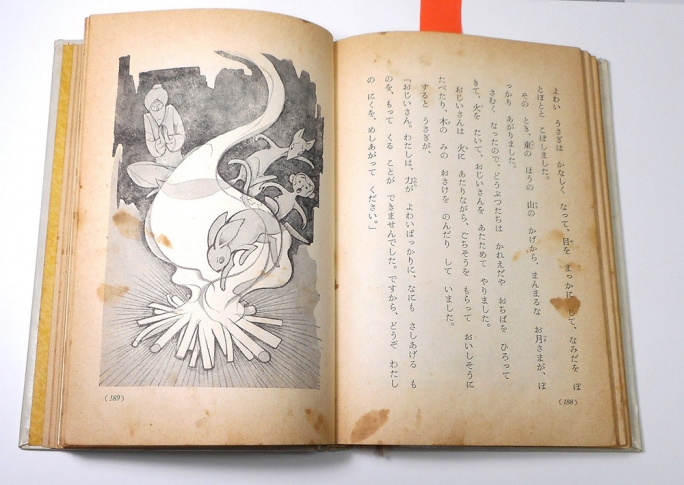 よわい うさぎは かなしく なって、目を まっかに して、なみだを ぽ
とぽとと こぼしました。
その とき、東の ほうの 山の かげから、まんまるな お月さまが、ぽ
っかり あがりました。
さむく なったので、どうぶつたちは かれえだや おちばを ひろって
きて、火を たいて、おじいさんを あたためて やりました。
おじいさんは 火に あたりながら、ごちそうを もらって おいしそうに
たべたり、木の みの おさけを のんだり して いました。
すると うさぎが、
「おじいさん。わたしは、力が よわいばっかりに、なにも さしあげる も
のを、もって くる ことが できませんでした。ですから、どうぞ わたし
の にくを、めしあがって ください。」
(188)
(189)